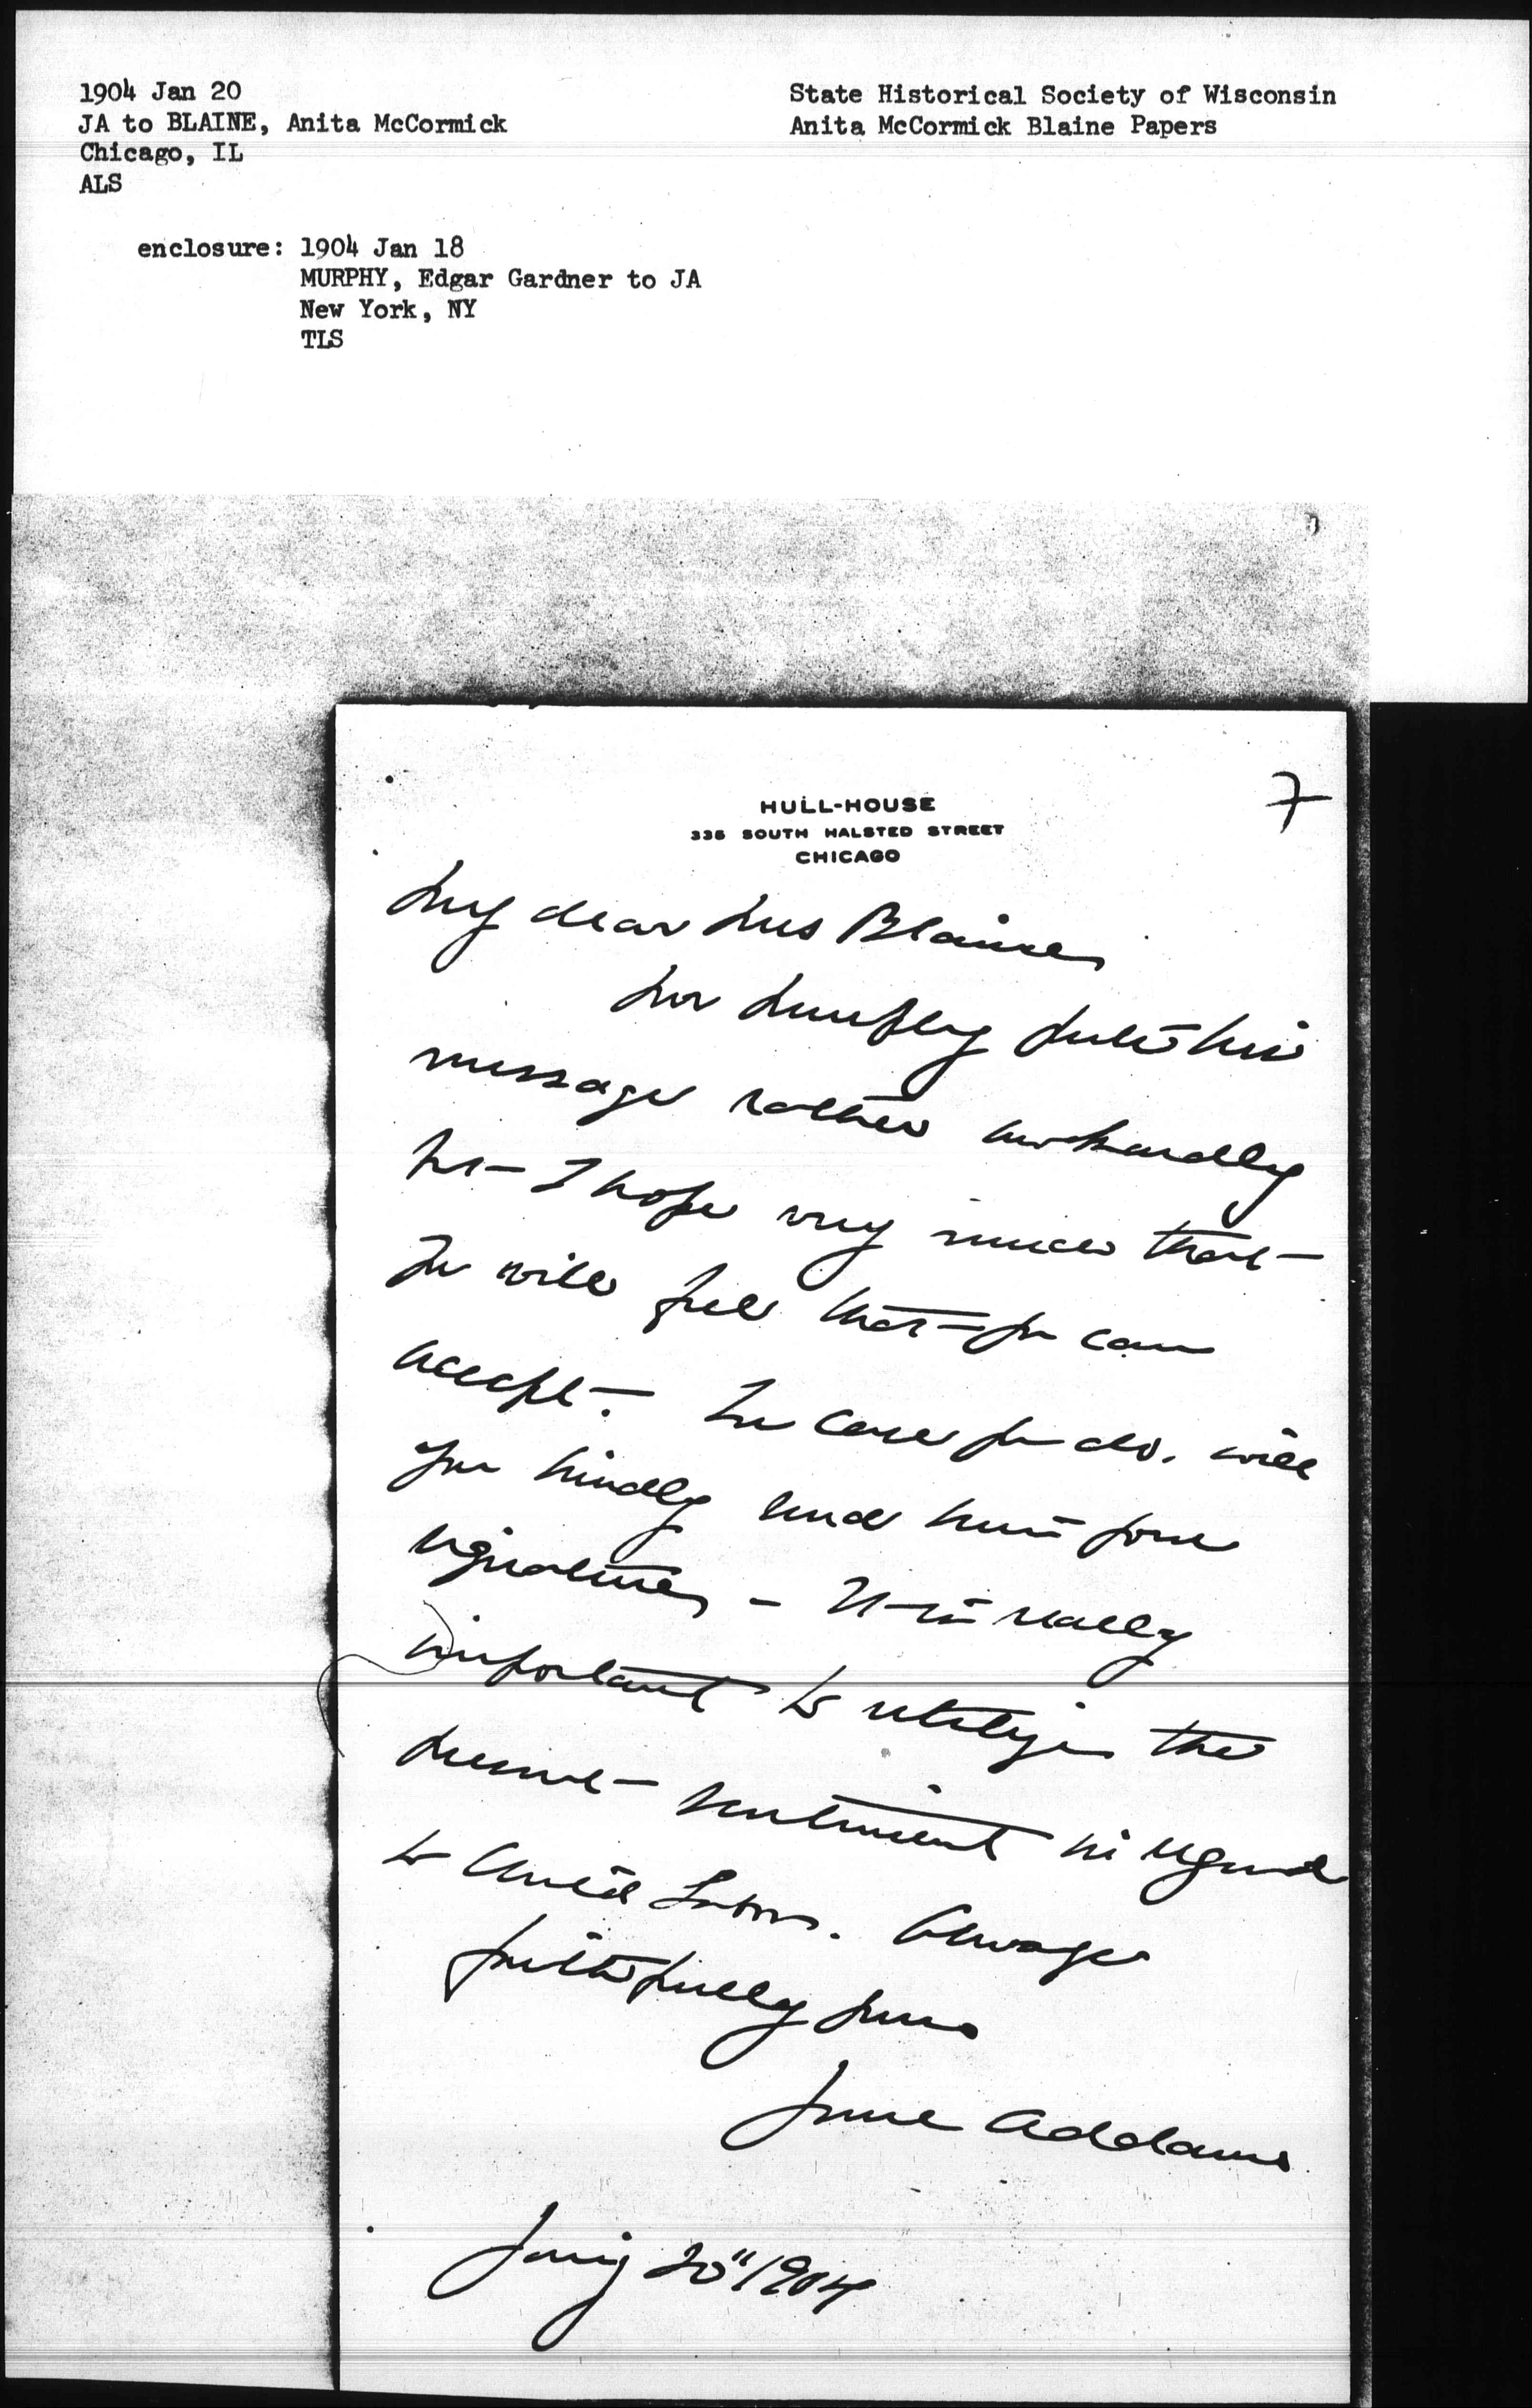 1904 Jan 20
JA to BLAINE, Anita McCormick
Chicago, IL
ALS
State Historical Society of Wisconsin
Anita McCormick Blaine Papers
enclosure: 1904 Jan 18
MURPHY, Edgar Gardner to JA
New York, NY
TLS
7
HULL-HOUSE
335 SOUTH HALSTED STREET
CHICAGO
My dear Mrs Blaine,
Mr Murphy puts his
message rather awkwardly
but I hope very much that
you will feel that you can
accept. In case you do, will
you kindly send him your
signature, - It is really
important to utilize the
present sentiment in regard
to Child Labor. Always
faithfully yours
Jane Addams
Jan'y 20" 1904